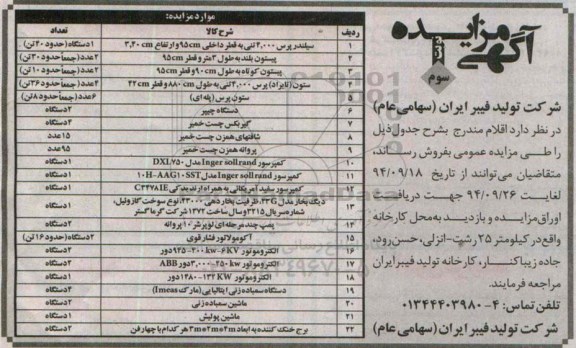 آگهی مزایده
نوبت سوم
شرکت تولید فیبر ایران (سهامی عام)
در نظر دارد اقلام مندرج بشرح جدول ذیل
را طی مزایده عمومی بفروش رساند،
متقاضیان می‌توانند از تاریخ ۹۴/۰۹/۱۸
لغایت ۹۴/۰۹/۲۶ جهت دریافت
اوراق مزایده و بازدید به محل کارخانه
واقع در کیلومتر ۲۵ رشت-انزلی، حسن رود،
جاده زیباکنار، کارخانه تولید فیبر ایران
مراجعه فرمایند.
تلفن تماس: ۴-۰۱۳۴۴۴۰۳۹۸۰
شرکت تولید فیبر ایران (سهامی عام)
موارد مزایده:
ردیف شرح کالا تعداد
۱ سیلندر پرس ۴,۰۰۰ تنی به قطر داخلی ۹۵cm و ارتفاع ۳,۲۰cm ۱دستگاه (حدود ۴۰ تن)
۲ پیستون بلند به طول ۳ متر و قطر ۹۵cm ۲عدد (جمعاً حدود ۳۰ تن)
۳ پیستون کوتاه به طول ۹۰cm و قطر ۹۵cm ۲عدد (جمعاً حدود ۱۰ تن)
۴ ستون (تایراد) پرس ۴,۰۰۰ تنی به طول ۸۸۰cm و قطر ۴۲cm ۴عدد (جمعاً حدود ۳۶ تن)
۵ ستون پرس (پله‌ای) ۶عدد (جمعاً حدود ۸ تن)
۶ دستگاه چیپر ۲دستگاه
۷ گیربکس چست خمیر ۴دستگاه
۸ شافتهای همزن چست خمیر ۱۵عدد
۹ پروانه همزن چست خمیر ۹۵عدد
۱۰ کمپرسور Inger sollrand مدل DXL۷۵۰ ۱دستگاه
۱۱ کمپرسور Inger sollrand مدل ۱۰H-AAG۱۰SST ۱دستگاه
۱۲ کمپرسور سفید آمریکائی به همراه لرند یدکی C۴۴۷۸IE ۱دستگاه
۱۳ دیگ بخار مدل ۲۳G، ظرفیت بخاردهی ۲۳۰۰۰، نوع سوخت گازوئیل، شماره سریال ۳۲۱۵ و سال ساخت ۱۳۷۲ شرکت گرما گستر ۱دستگاه
۱۴ پمپ چند مرحله‌ای لوپرشر ۱۰ پروانه ۲دستگاه
۱۵ آکومولاتور فشار قوی ۲دستگاه (حدود ۱۶ تن)
۱۶ الکتروموتور ۲۰۰kw-۶KV-۹۲۵دور ۲دستگاه
۱۷ الکتروموتور ۲۵۰kw-۳,۰۰۰دور ABB ۲دستگاه
۱۸ الکتروموتور ۱۳۲KW-۱۴۸۰دور ۱دستگاه
۱۹ دستگاه سمباده زنی ایتالیایی (مارک Imeas) ۴دستگاه
۲۰ ماشین سمباده زنی ۲دستگاه
۲۱ ماشین پولیش ۱دستگاه
۲۲ برج خنک کننده به ابعاد ۳m*۲m*۴m هر کدام با چهار فن ۲دستگاه